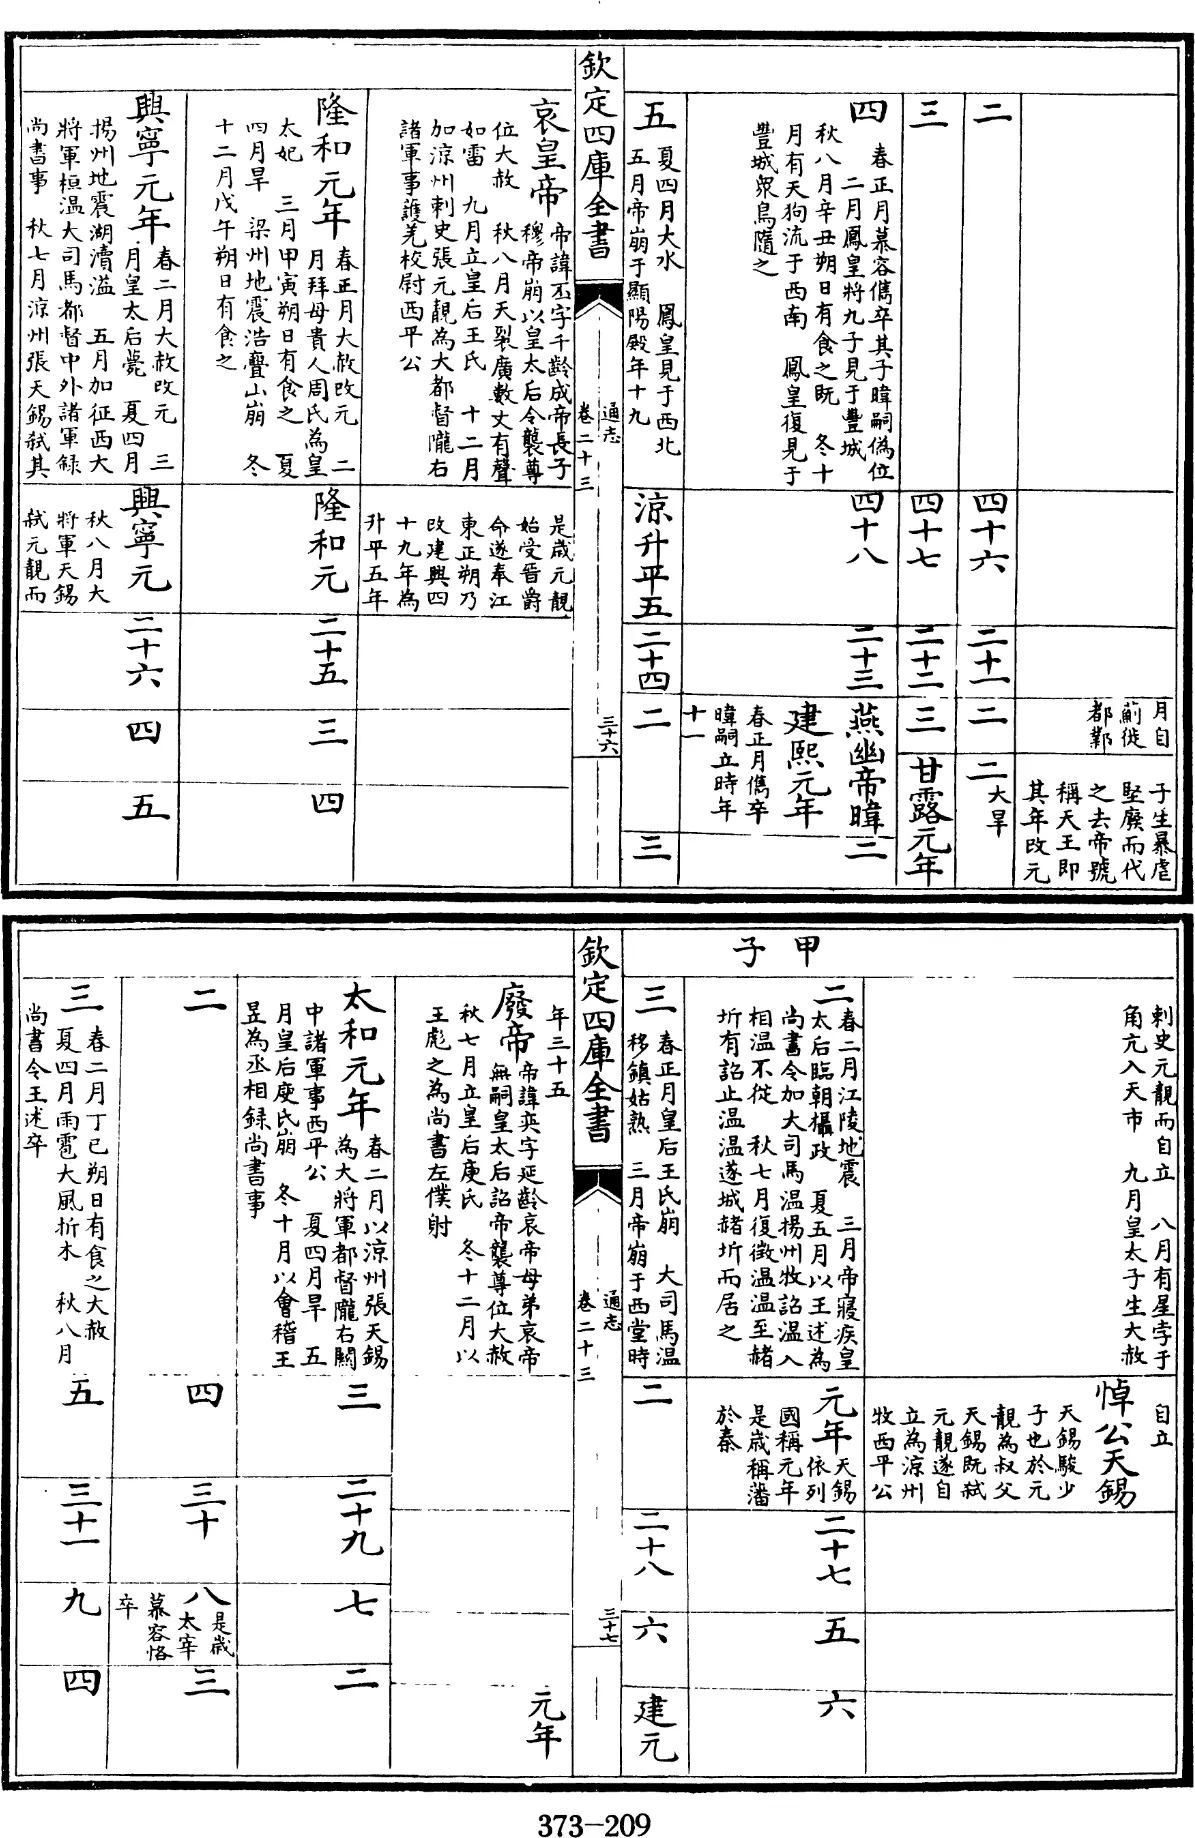 月自
薊徙
都鄴
子生暴虐
堅廢而代
之去帝號
稱天王即
其年改元
二
四十六
二十一
二
二大旱
三
四十七
二十二
三
甘露元年
四
春正月慕容儁卒其子暐嗣偽位
二月鳳皇將九子見于豐城
秋八月辛丑朔日有食之既 冬十
月有天狗流于西南 鳳皇復見于
豐城衆鳥隨之
四十八
二十三
燕幽帝暐
建熙元年
春正月儁卒
暐嗣立時年
十一
二
五
夏四月大水 鳳皇見于西北
五月帝崩于顯陽殿年十九
涼升平五
二十四
二
三
欽定四庫全書
通志
卷二十三
三十六
哀皇帝
帝諱丕字千齡成帝長子
穆帝崩以皇太后令襲尊
位大赦 秋八月天裂廣數丈有聲
如雷 九月立皇后王氏 十二月
加涼州刺史張元靚為大都督隴右
諸軍事護羌校尉西平公
是歲元靚
始受晉爵
命遂奉江
東正朔乃
改建興四
十九年為
升平五年
隆和元年
春正月大赦改元 二
月拜母貴人周氏為皇
太妃 三月甲寅朔日有食之 夏
四月旱 梁州地震浩亹山崩 冬
十二月戊午朔日有食之
隆和元
二十五
三
四
興寧元年
春二月大赦改元 三
月皇太后薨 夏四月
揚州地震湖瀆溢 五月加征西大
將軍桓温大司馬都督中外諸軍録
尚書事 秋七月涼州張天錫弑其
興寧元
秋八月大
將軍天錫
弑元靚而
二十六
四
五
刺史元靚而自立 八月有星孛于
角亢入天市 九月皇太子生大赦
自立
悼公天錫
天錫駿少
子也於元
靚為叔父
天錫既弑
元靚遂自
立為涼州
牧西平公
甲子
二
春二月江陵地震 三月帝寢疾皇
太后臨朝攝政 夏五月以王述為
尚書令加大司馬温揚州牧詔温入
相温不從 秋七月復徵温温至赭
圻有詔止温温遂城赭圻而居之
元年
天錫
依列
國稱元年
是歲稱藩
於秦
二十七
五
六
三
春正月皇后王氏崩 大司馬温
移鎮姑熟 三月帝崩于西堂時
二
二十八
六
建元
欽定四庫全書
通志
卷二十三
三十七
年三十五
廢帝
帝諱奕字延齡哀帝母弟哀帝
無嗣皇太后詔帝襲尊位大赦
秋七月立皇后庾氏 冬十二月以
王彪之為尚書左僕射
元年
太和元年
春二月以涼州張天錫
為大將軍都督隴右關
中諸軍事西平公 夏四月旱 五
月皇后庾氏崩 冬十月以會稽王
昱為丞相録尚書事
三
二十九
七
二
二
四
三十
八
是歲
太宰
慕容恪
卒
三
三
春二月丁巳朔日有食之大赦
夏四月雨雹大風折木 秋八月
尚書令王述卒
五
三十一
九
四
373-209